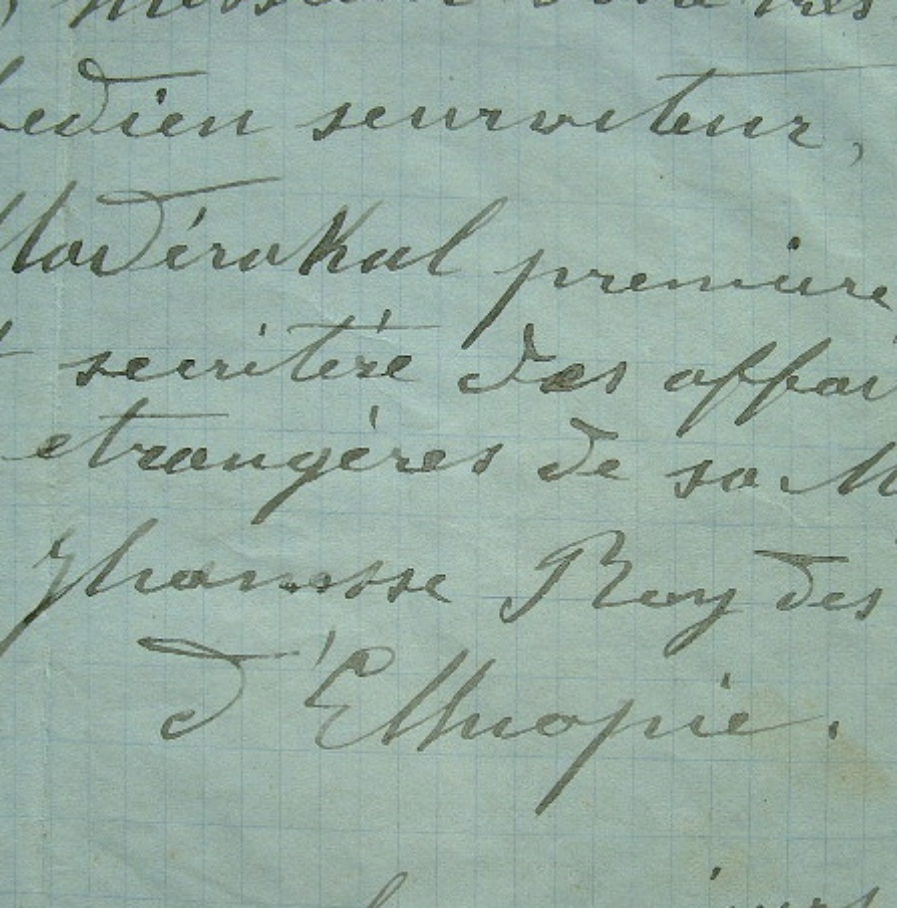 bedien seurviteur,
Madérakal première
secritére des affai
etrangéres de sa M
Yhanesse Roy des
d'Ethiopie.